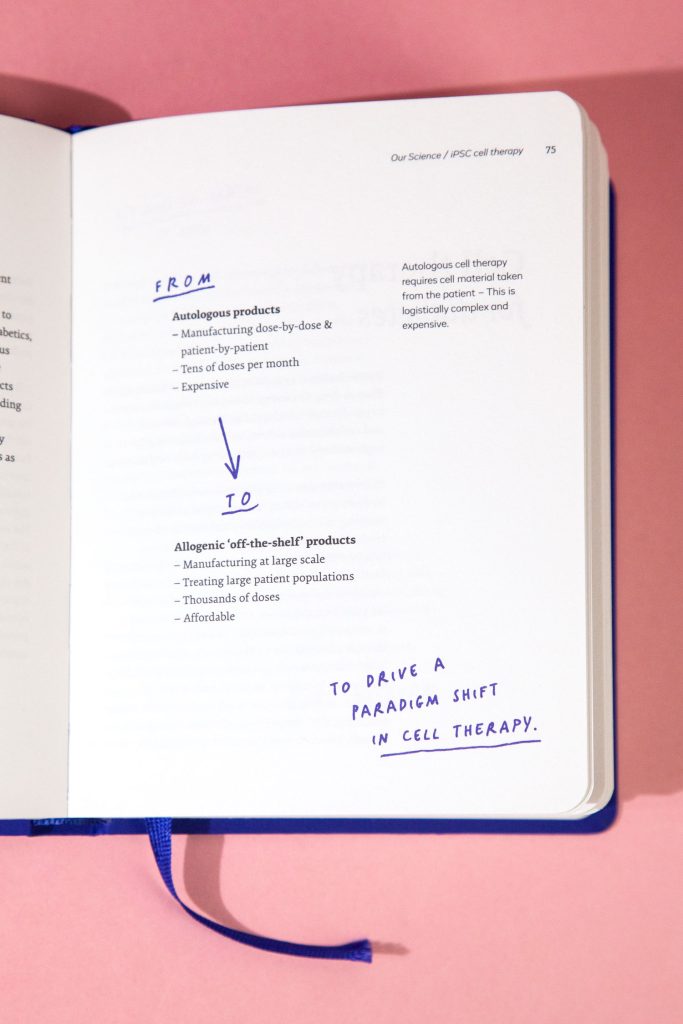 Our Science / iPSC cell therapy 75
nt
to
abetics,
us
cts
ding
y
s as
FROM
Autologous products
– Manufacturing dose-by-dose &
patient-by-patient
– Tens of doses per month
– Expensive
Autologous cell therapy
requires cell material taken
from the patient – This is
logistically complex and
expensive.
TO
Allogenic ‘off-the-shelf’ products
– Manufacturing at large scale
– Treating large patient populations
– Thousands of doses
– Affordable
TO DRIVE A
PARADIGM SHIFT
IN CELL THERAPY.